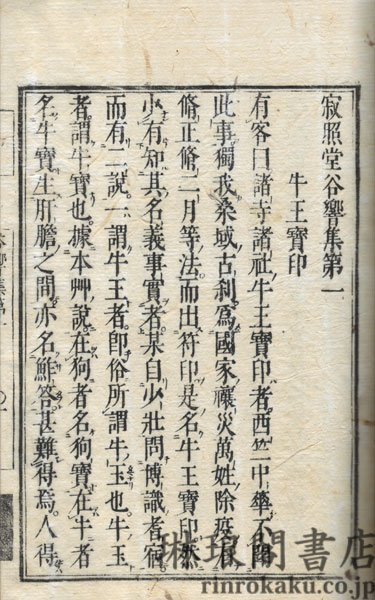 寂照堂谷響集第一
牛王寶印
有客曰諸寺諸社牛王寶印者西竺中華不聞
此事獨我桑域古刹爲國家禳災萬姓除疫
脩正脩二月等法而出符印是名牛王寶印然
少有知其名義事實者某自少壯問博識者宿
而有二說一謂牛王者卽俗所謂牛玉也牛玉
者謂牛寶也據本艸說在狗者名狗寶在牛者
名牛寶生肝膽之間亦名鮓答甚難得焉人得
琳琅閣書店
www.rinrokaku.co.jp